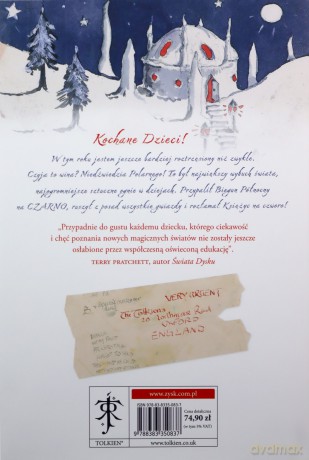 Kochane Dzieci!
W tym roku jestem jeszcze bardziej roztrzęsiony niż zwykle.
Czyja to wina? Niedźwiedzia Polarnego! To był największy wybuch świata,
najogromniejsze sztuczne ognie w dziejach. Przypalił Biegun Północny
na CZARNO, ruszył z posad wszystkie gwiazdy i rozłamał Księżyc na czworo!
„Przypadnie do gustu każdemu dziecku, którego ciekawość
i chęć poznania nowych magicznych światów nie zostały jeszcze
osłabione przez współczesną oświeconą edukację”.
TERRY PRATCHETT, autor Świata Dysku
VERY URGENT
The Tolkiens
20 Northmoor Road
OXFORD
ENGLAND
www.zysk.com.pl
9 788383 350837
Cena detaliczna
74,90 zł
(w tym 5% VAT)
TOLKIEN®
www.tolkien.co.uk
avdmax